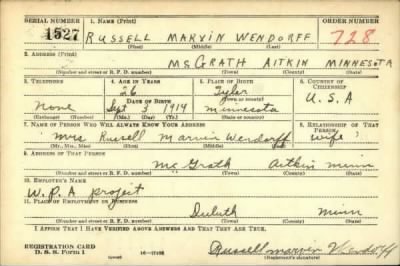 SERIAL NUMBER 1. Name (Print) ORDER NUMBER
1527 RUSSELL MARVIN WENDORFF 728
(First) (Middle) (Last)
2. Address (Print)
McGRATH AITKIN MINNESOTA
(Number and street or R. F. D. number) (Town) (County) (State)
3. Telephone 4. Age in Years 5. Place of Birth 6. Country of Citizenship
26 Tyler
Date of Birth (Town or county)
None Sept 3 1914 Minnesota U.S.A
(Exchange) (Number) (Mo.) (Day) (Yr.) (State or country)
7. Name of Person Who Will Always Know Your Address 8. Relationship of That Person
Mrs Russell Marvin Wendorff wife
(Mr., Mrs., Miss) (First) (Middle) (Last)
9. Address of That Person
McGrath Aitkin Minn
(Number and street or R. F. D. number) (Town) (County) (State)
10. Employer's Name
W.P.A project
11. Place of Employment or Business
Duluth Minn
(Number and street or R. F. D. number) (Town) (County) (State)
I Affirm That I Have Verified Above Answers and That They Are True.
REGISTRATION CARD
D. S. S. Form 1 Russell marvin Wendorff
(Registrant's signature)